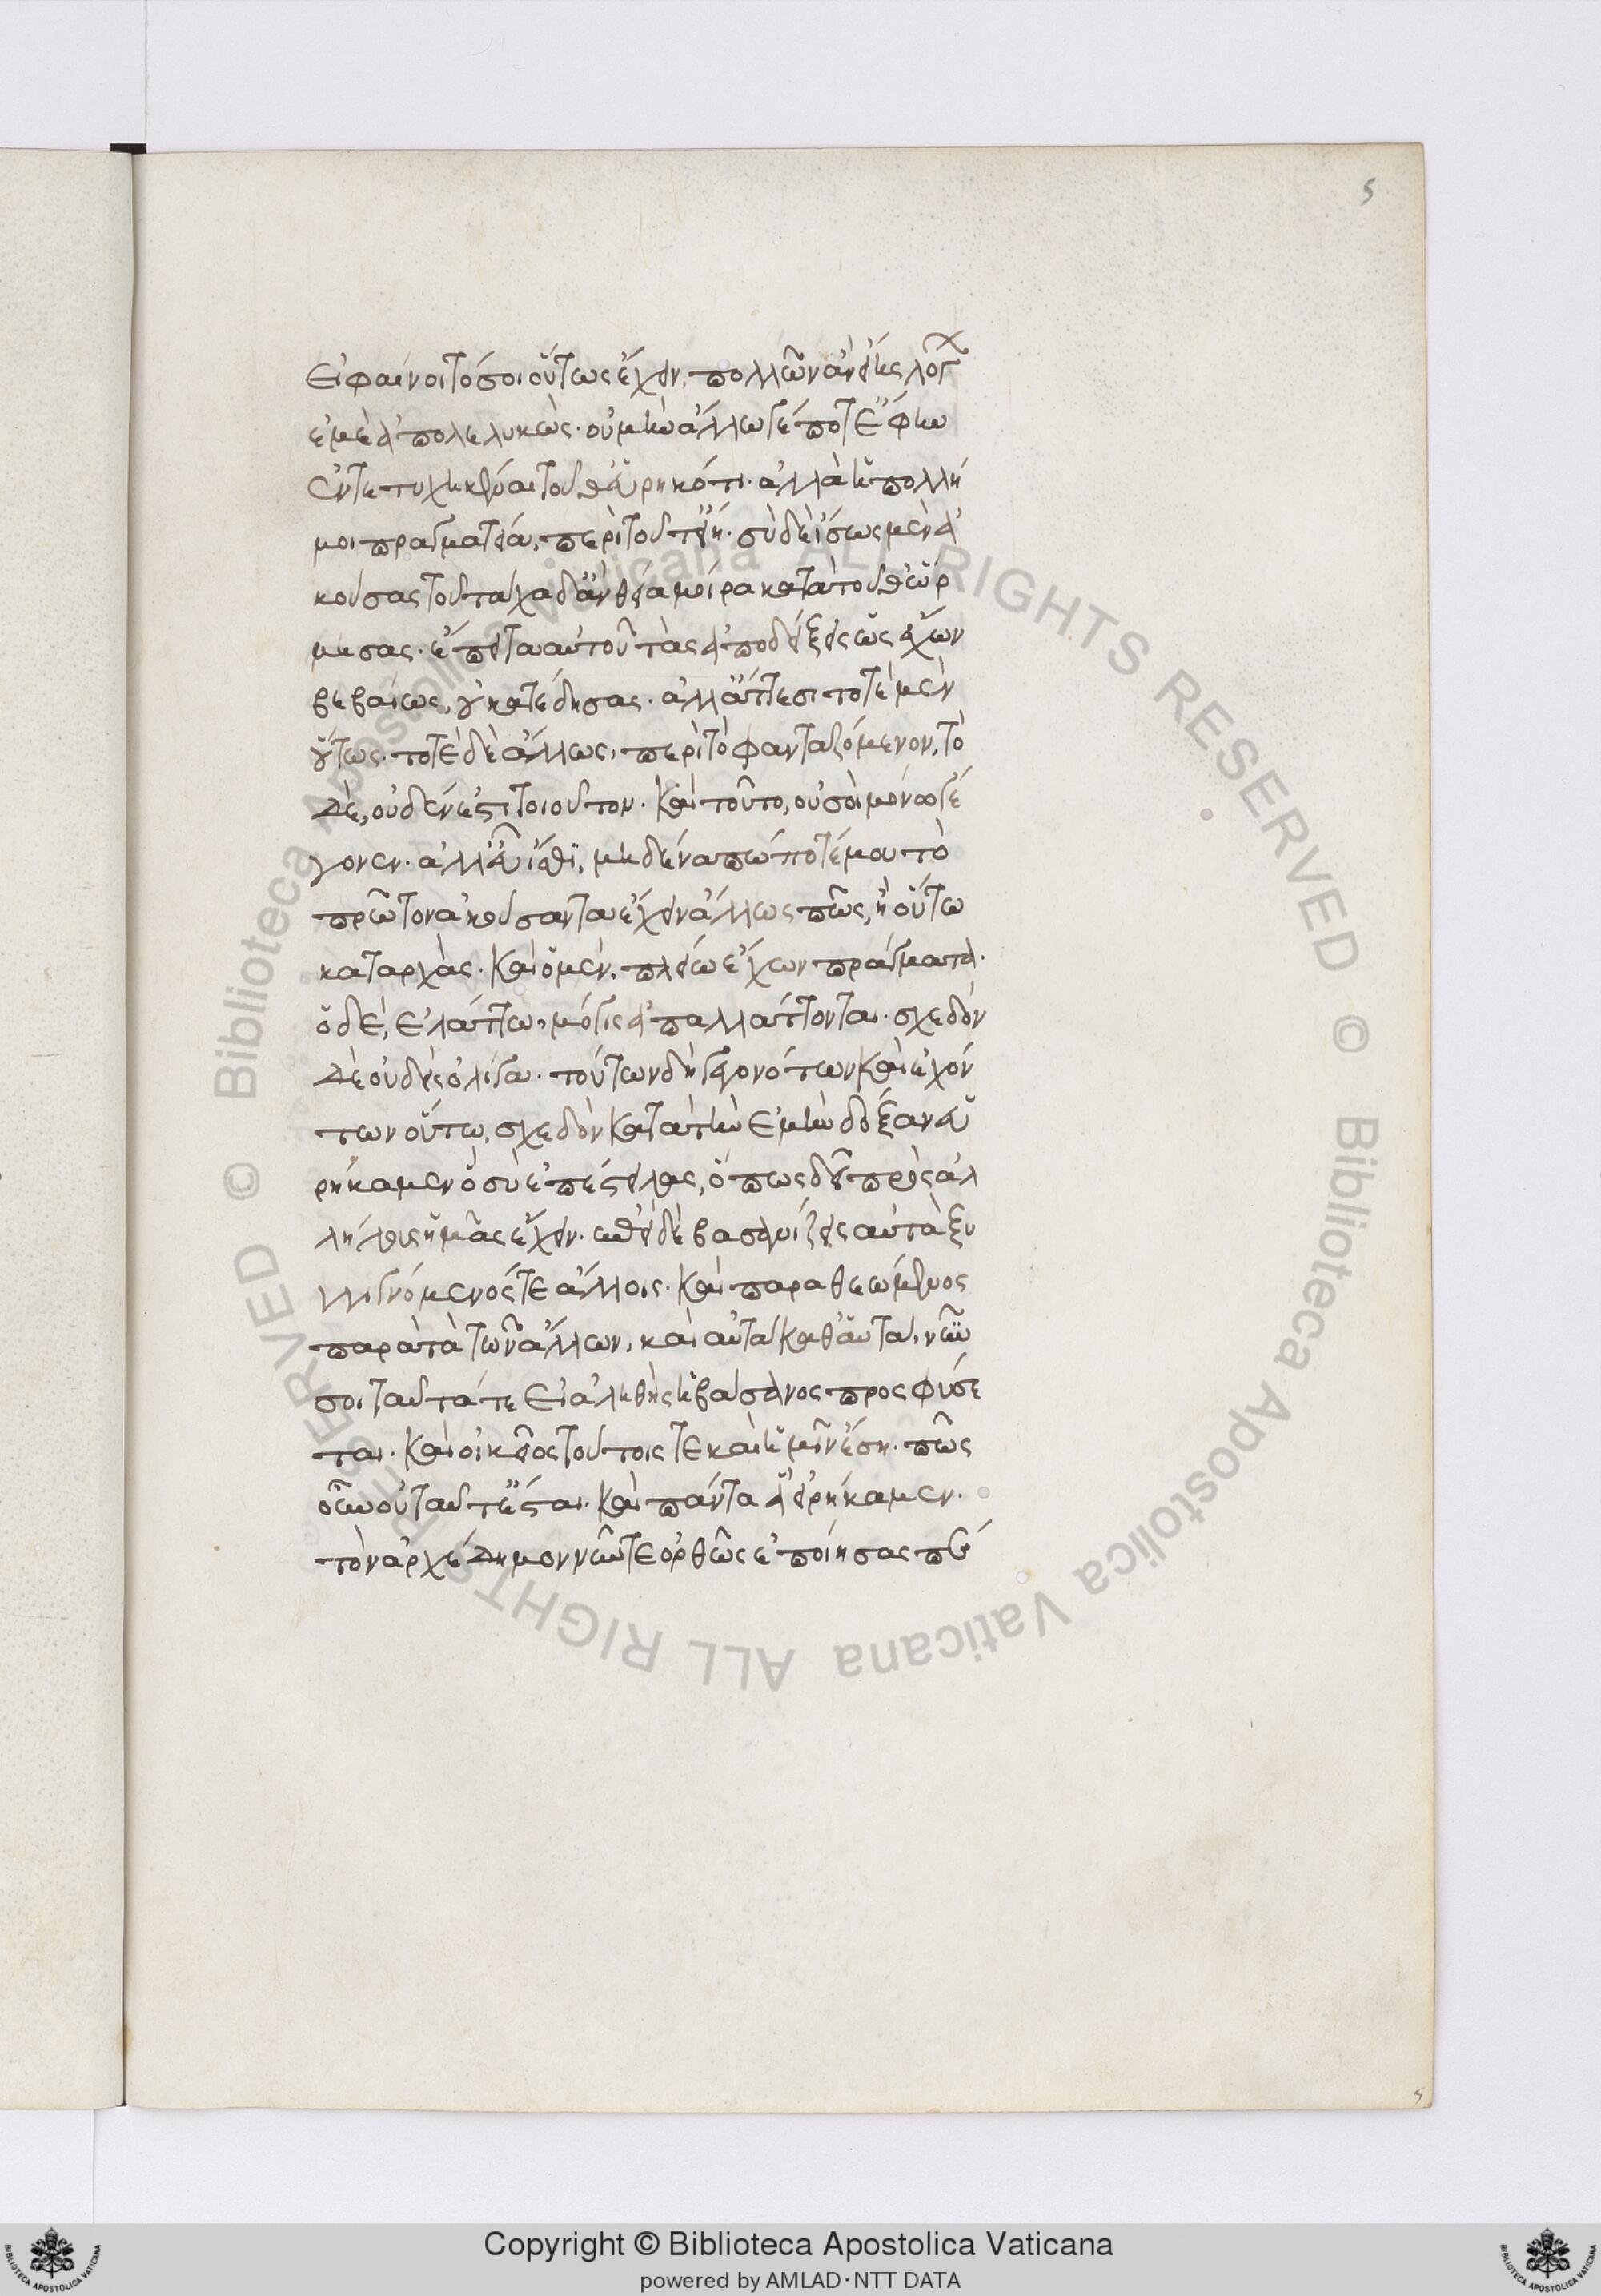 5
εἰ φαίνοιτό σοι οὕτως ἔχειν, πολλῶν ἂν εἴης λόγων
ἐμὲ ἀπολελυκώς. οὐ μὴν ἄλλω γέ ποτ' ἔφην
ἐντετυχηκέναι τοῦθ' εὑρηκότι. ἀλλὰ ἡ πολλή
μοι πραγματεία, περὶ τοῦτ' εἴη. σὺ δὲ ἴσως μὲν ἀ
κούσας του τάχα δ' ἂν θεία μοίρα κατὰ τοῦθ' ὥρ
μησας. ἔπειτα αὐτοῦ τὰς ἀποδείξεις ὡς ἔχων
βεβαίως, οὐ κατέδησας. ἀλλ' ἄττει σοι τοτὲ μὲν
οὕτως. τοτὲ δὲ ἄλλως, περὶ τὸ φανταζόμενον, τὸ
δὲ, οὐδέν ἐστι τοιοῦτον. καὶ τοῦτο, οὐ σοὶ μόνω γέ
γονεν. ἀλλ' εὖ ἴσθι, μηδένα πώποτέ μου τὸ
πρῶτον ἀκούσαντα ἔχειν ἄλλως πῶς, ἢ οὕτω
καταρχάς. καὶ ὁ μὲν, πλείω ἔχων πράγματα.
ὁ δὲ, ἐλάττω, μόγις ἀπαλλάττονται. σχεδὸν
δὲ οὐδεὶς ὀλίγα. τούτων δὴ γεγονότων καὶ ἐχόν
των οὕτω, σχεδὸν κατὰ τὴν ἐμὴν δόξαν εὑ
ρήκαμεν ὃ σὺ ἐπέστειλας, ὅπως δεῖ πρὸς ἀλ
λήλους ἡμᾶς ἔχειν. ἐπεὶ δὲ βασανίζεις αὐτὰ ξυ
γγιγνόμενός τε ἄλλοις. καὶ παραθεώμενος
παρὰ τὰ τῶν ἄλλων, καὶ αὐτὰ καθ' αὑτά, νῦν
σοι ταῦτά τε εἰ ἀληθὴς ἡ βάσανος προσφύσε
ται. καὶ οἰκεῖος τούτοις τε καὶ ἡμῖν ἔση. πῶς
οὖν αὐτά τ' ἔσται. καὶ πάντα ἃ εἰρήκαμεν.
τὸν ἀρχέδημον νῦν τε ὀρθῶς ἐποίησας πέμ
5
Copyright © Biblioteca Apostolica Vaticana
powered by AMLAD·NTT DATA